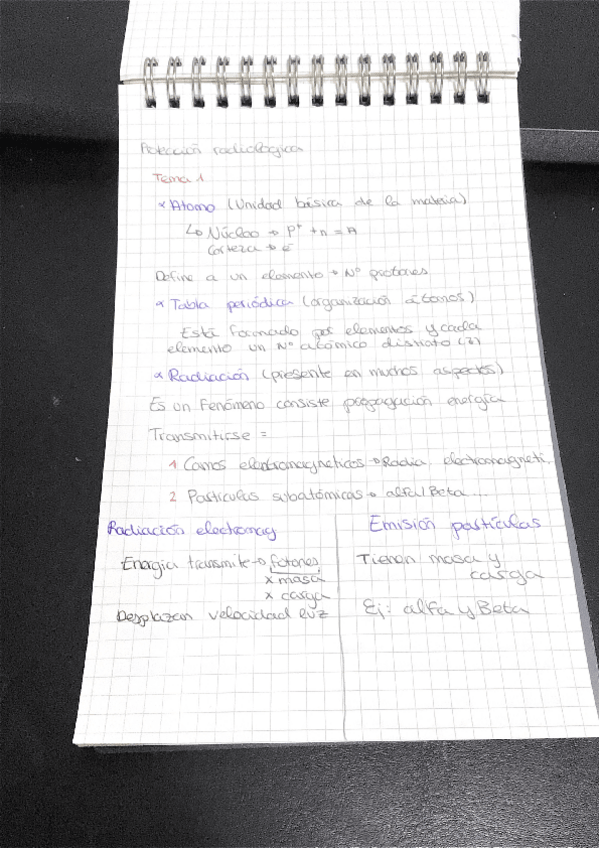 Protección radiologica
Tema 1
* Atomo (Unidad básica de la materia)
↳ Núcleo → P⁺ + n = A
Corteza → e⁻
Define a un elemento → Nº protones
* Tabla periódica (organización átomos)
Está formado por elementos y cada
elemento un Nº atómico disinto (z)
* Radiación (presente en muchos aspectos)
Es un Fenómeno consiste propagación energía
Transmitirse =
1 Camos electromagneticos → Radia. electromagneti.
2 Particulas subatómicas → alfa/Beta ...
Radiación electromag
Energia transmite → fotones
x masa
x carga
Desplazan velocidad luz
Emisión partículas
Tienen masa y
carga
Ej: alfa y Beta